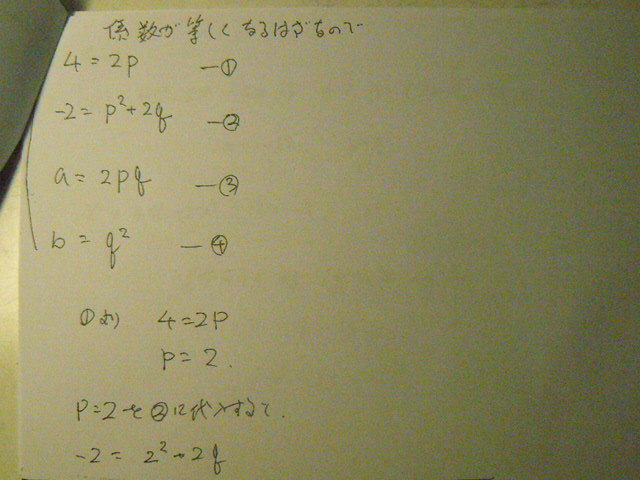 係数が等しくなるはずなので
4 = 2p ー①
-2 = p²+2q ー②
a = 2pq ー③
b = q² ー④
①より 4=2p
p = 2.
P=2を②に代入すると.
-2 = 2²+2q